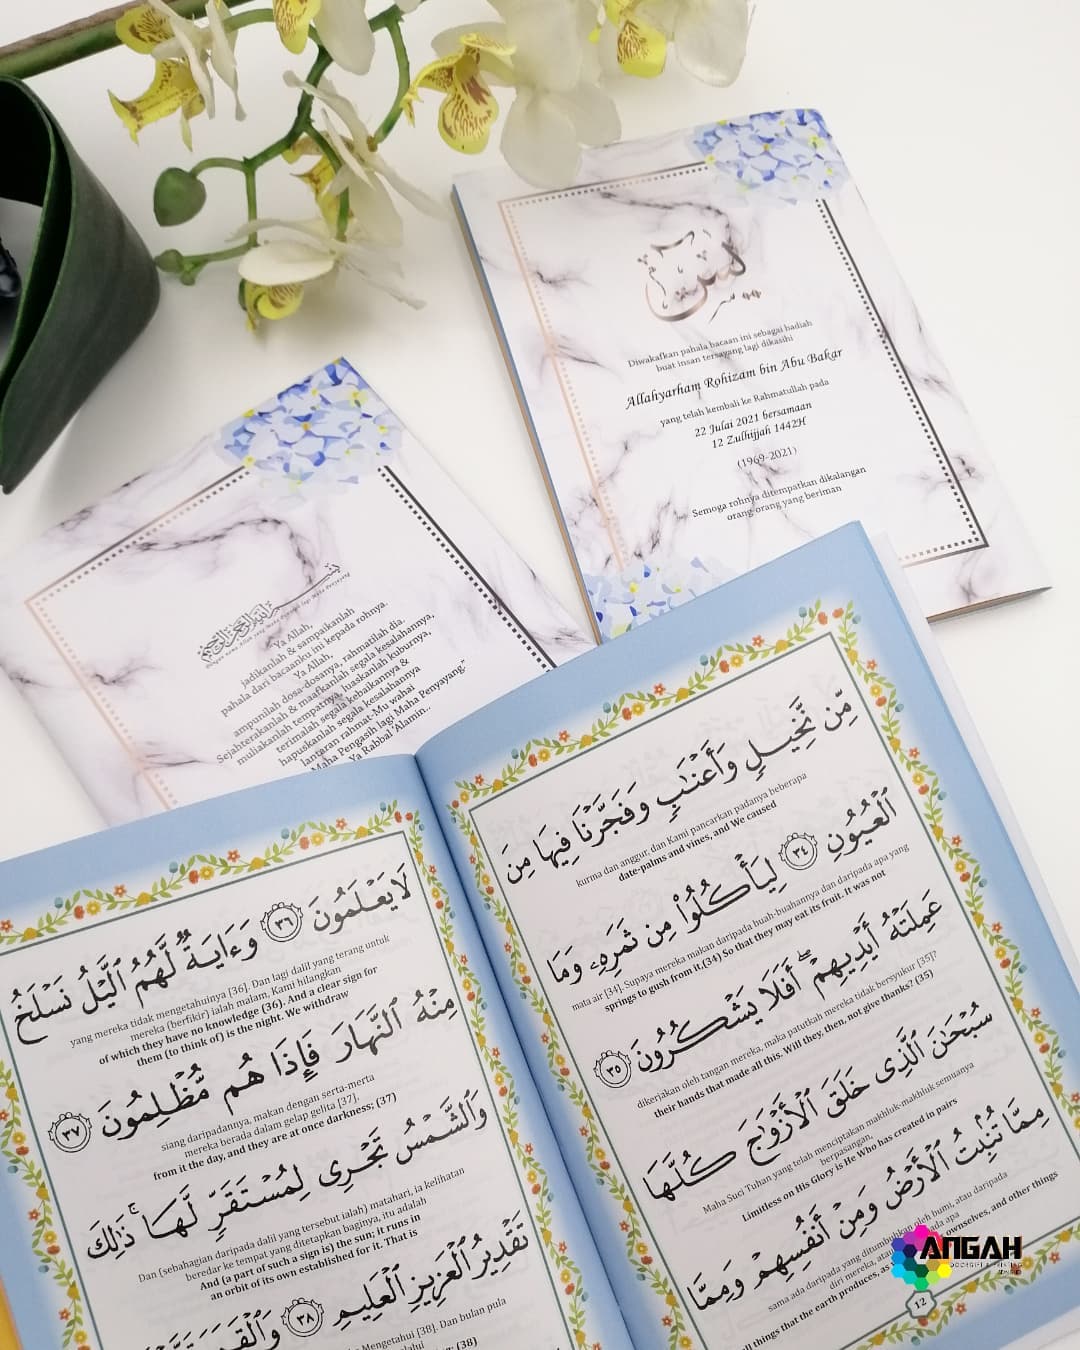 يس
Diwakafkan pahala bacaan ini sebagai hadiah
buat insan tersayang lagi dikasihi
Allahyarham Rohizam bin Abu Bakar
yang telah kembali ke Rahmatullah pada
22 Julai 2021 bersamaan
12 Zulhijjah 1442H
(1969-2021)
Semoga rohnya ditempatkan dikalangan
orang-orang yang beriman
Dengan nama Allah yang Maha Pengasih lagi Maha Penyayang
Ya Allah,
jadikanlah & sampaikanlah
pahala dari bacaanku ini kepada rohnya.
Ya Allah,
ampunilah dosa-dosanya, rahmatilah dia.
Sejahterakanlah & maafkanlah segala kesalahannya,
muliakanlah tempatnya, luaskanlah kuburnya,
terimalah segala kebaikannya &
hapuskanlah segala kesalahannya
lantaran rahmat-Mu wahai
Maha Pengasih lagi Maha Penyayang."
Ya Rabbal 'Alamin..
مِّن نَّخِيلٍ وَأَعْنَٰبٍ وَفَجَّرْنَا فِيهَا مِنَ
kurma dan anggur, dan Kami pancarkan padanya beberapa
date-palms and vines, and We caused
ٱلْعُيُونِ ٣٤ لِيَأْكُلُوا۟ مِن ثَمَرِهِۦ وَمَا
mata air [34]. Supaya mereka makan daripada buah-buahannya dan daripada apa yang
springs to gush from it,(34) So that they may eat its fruit. It was not
عَمِلَتْهُ أَيْدِيهِمْ ۖ أَفَلَا يَشْكُرُونَ ٣٥
dikerjakan oleh tangan mereka, maka patutkah mereka tidak bersyukur [35]?
their hands that made all this. Will they, then, not give thanks? (35)
سُبْحَٰنَ ٱلَّذِى خَلَقَ ٱلْأَزْوَٰجَ كُلَّهَا
Maha Suci Tuhan yang telah menciptakan makhluk-makhluk semuanya
berpasangan,
Limitless on His Glory is He Who has created in pairs
مِمَّا تُنۢبِتُ ٱلْأَرْضُ وَمِنْ أَنفُسِهِمْ وَمِمَّا
sama ada daripada yang ditumbuhkan oleh bumi, atau daripada
diri mereka, apa
all things that the earth produces, as ownselves, and other things
12
لَا يَعْلَمُونَ ٣٦ وَءَايَةٌ لَّهُمُ ٱلَّيْلُ نَسْلَخُ
yang mereka tidak mengetahuinya [36]. Dan lagi dalil yang terang untuk
mereka (berfikir) ialah malam. Kami hilangkan
of which they have no knowledge (36). And a clear sign for
them (to think of) is the night. We withdraw
مِنْهُ ٱلنَّهَارَ فَإِذَا هُم مُّظْلِمُونَ ٣٧
siang daripadanya, makan dengan serta-merta
mereka berada dalam gelap gelita [37].
from it the day, and they are at once darkness; (37)
وَٱلشَّمْسُ تَجْرِى لِمُسْتَقَرٍّ لَّهَا ۚ ذَٰلِكَ
Dan [sebahagian daripada dalil yang tersebut ialah) matahari, ia kelihatan
beredar ke tempat yang ditetapkan baginya, itu adalah
And (a part of such a sign is) the sun; it runs in
an orbit of its own established for it. That is
تَقْدِيرُ ٱلْعَزِيزِ ٱلْعَلِيمِ ٣٨ وَٱلْقَمَرَ
Mengetahui [38]. Dan bulan pula
(38)
ANGAH